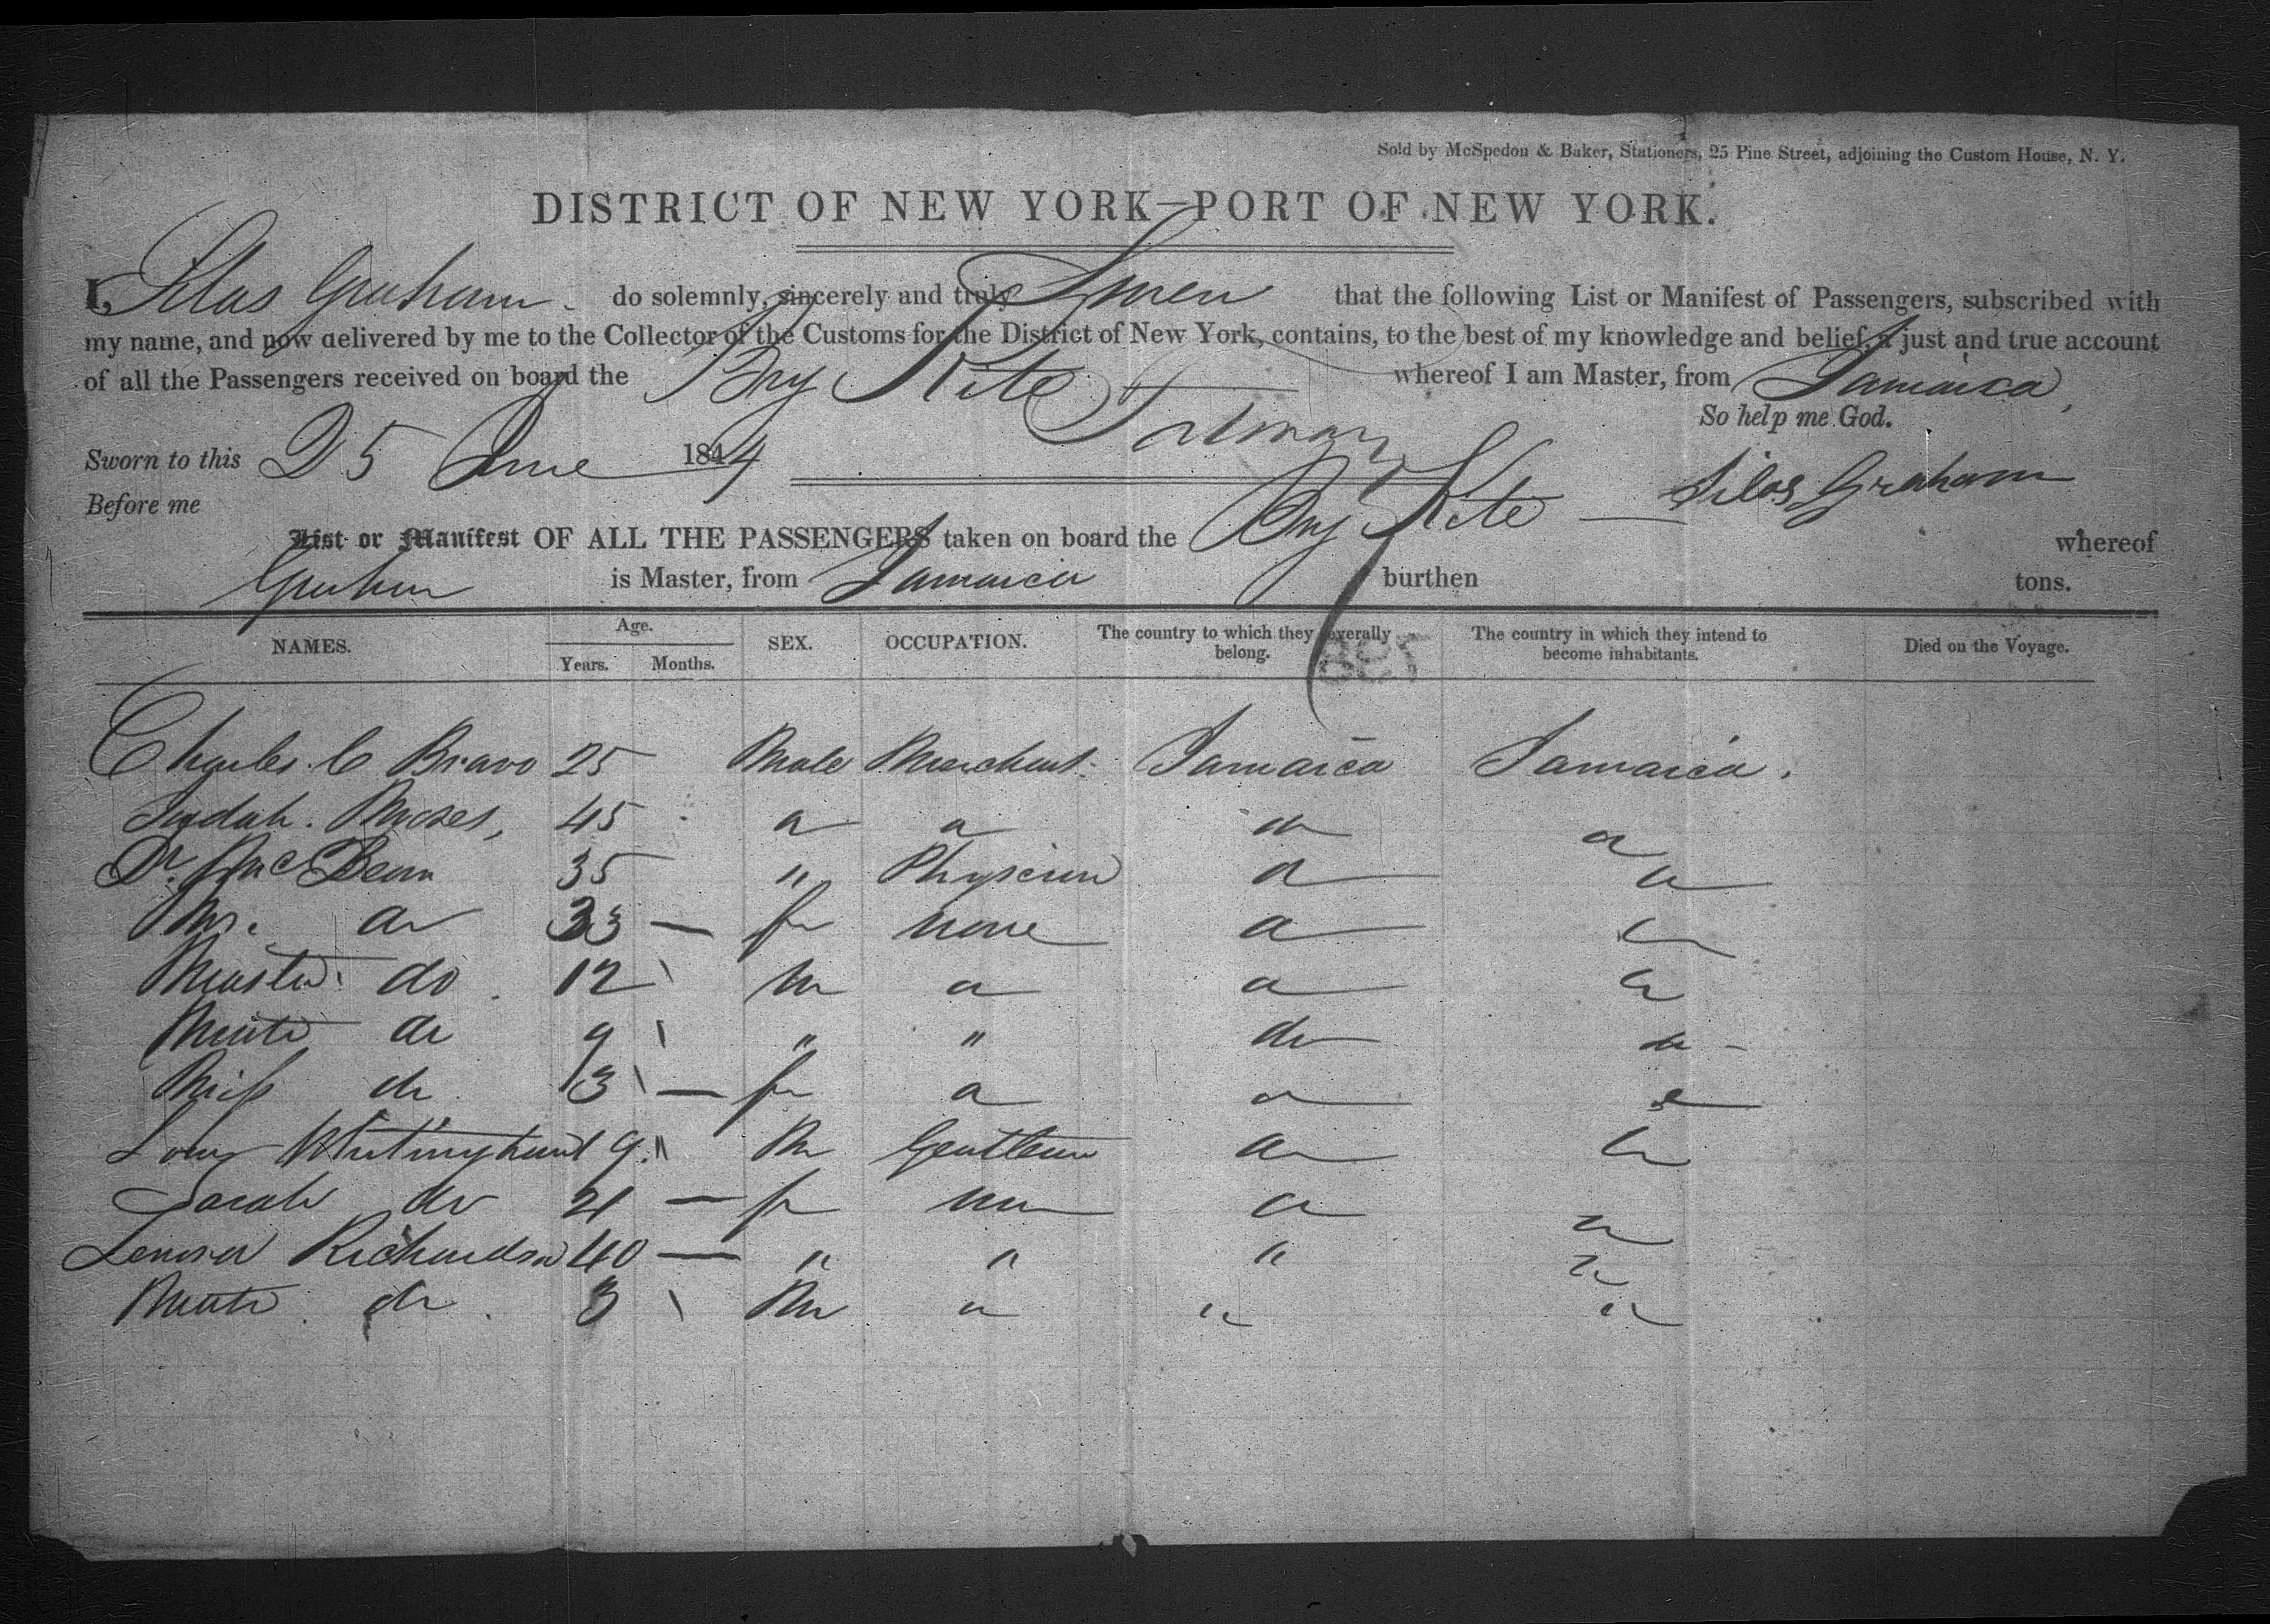 Sold by McSpedon & Baker, Stationers, 25 Pine Street, adjoining the Custom House, N. Y.
DISTRICT OF NEW YORK—PORT OF NEW YORK.
I, Silas Graham do solemnly, sincerely and truly Swear that the following List or Manifest of Passengers, subscribed with
my name, and now delivered by me to the Collector of the Customs for the District of New York, contains, to the best of my knowledge and belief, a just and true account
of all the Passengers received on board the Brig Kite whereof I am Master, from Jamaica,
So help me God.
Sworn to this 25 June 1844 Silas Graham
Before me
List or Manifest OF ALL THE PASSENGERS taken on board the Brig Kite whereof
Graham is Master, from Jamaica burthen tons.
NAMES. Age. Years. Months. SEX. OCCUPATION. The country to which they severally belong. The country in which they intend to become inhabitants. Died on the Voyage.
Charles C Bravo 25 Male Merchant Jamaica Jamaica.
Judah. Moses, 45 do do do do
Dr. McBean 35 " Physician do do
Mrs. do 33 — fe none do do
Master do 12 M do do do
Master do 9 " " do do
Miss do 13 — fe do do do
19 M Gentleman do do
Sarah do 21 — fe do do
Richardson 40 — " " " "
Master do 3 M " " "